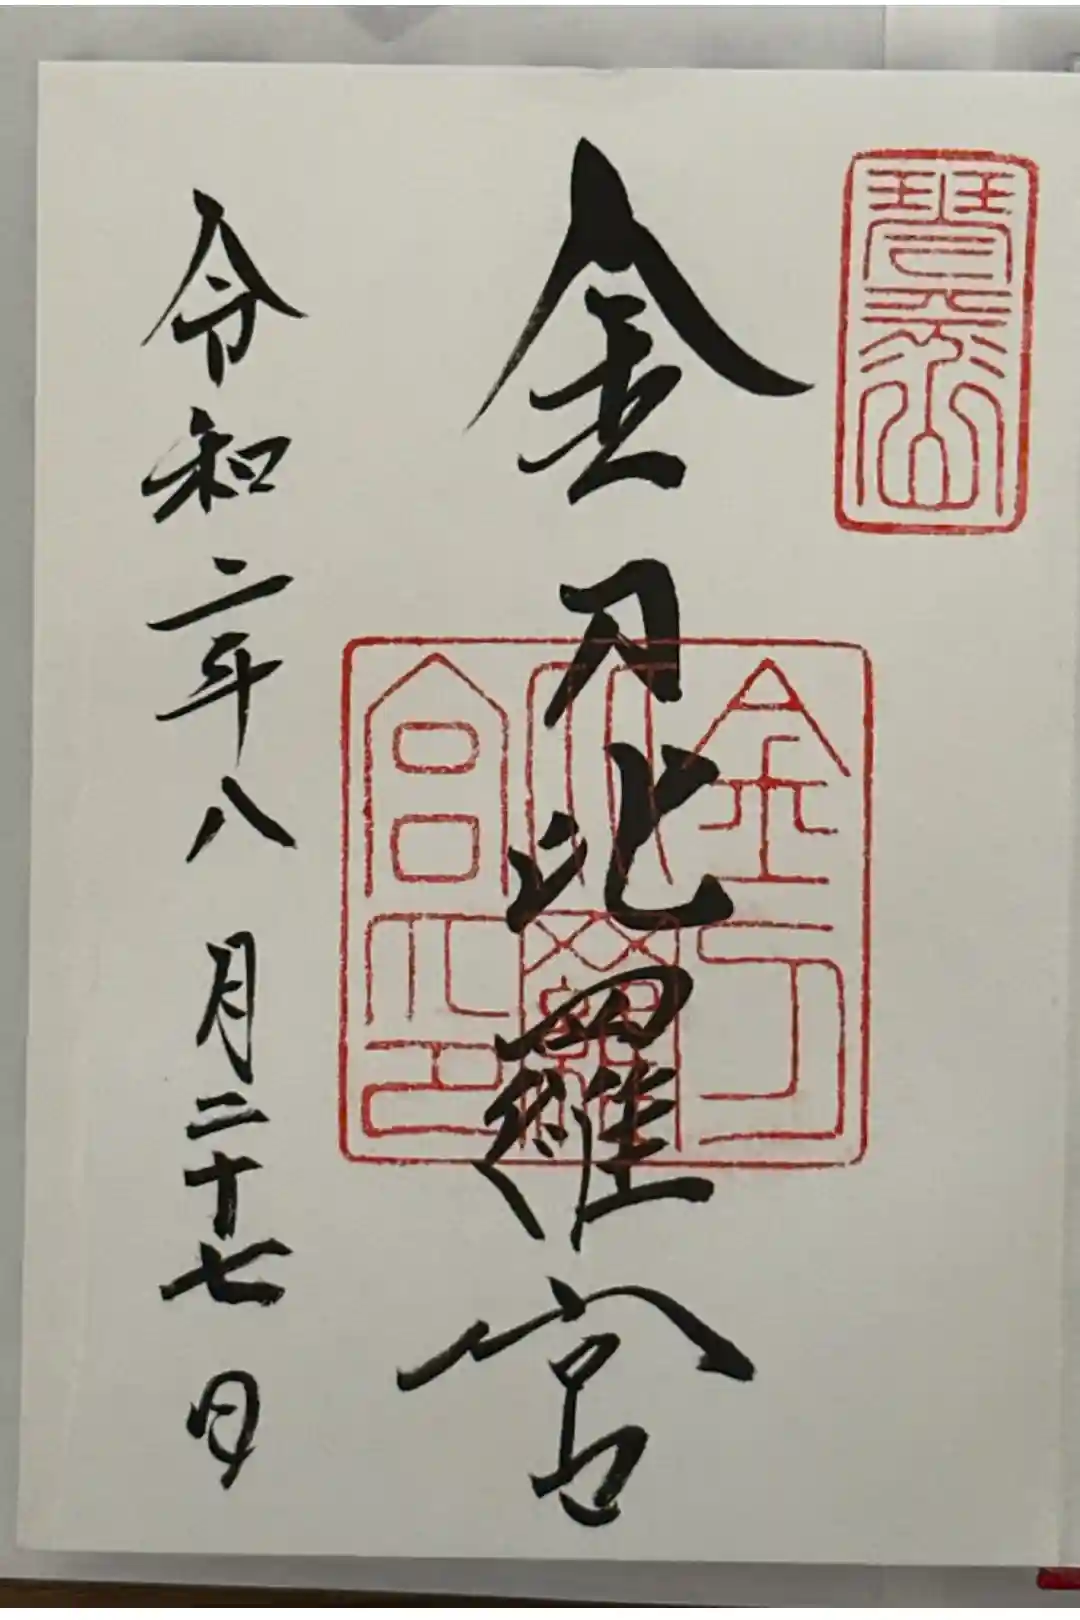 琴平山
金刀比羅宮
金刀比羅宮之印
令和二年八月二十七日